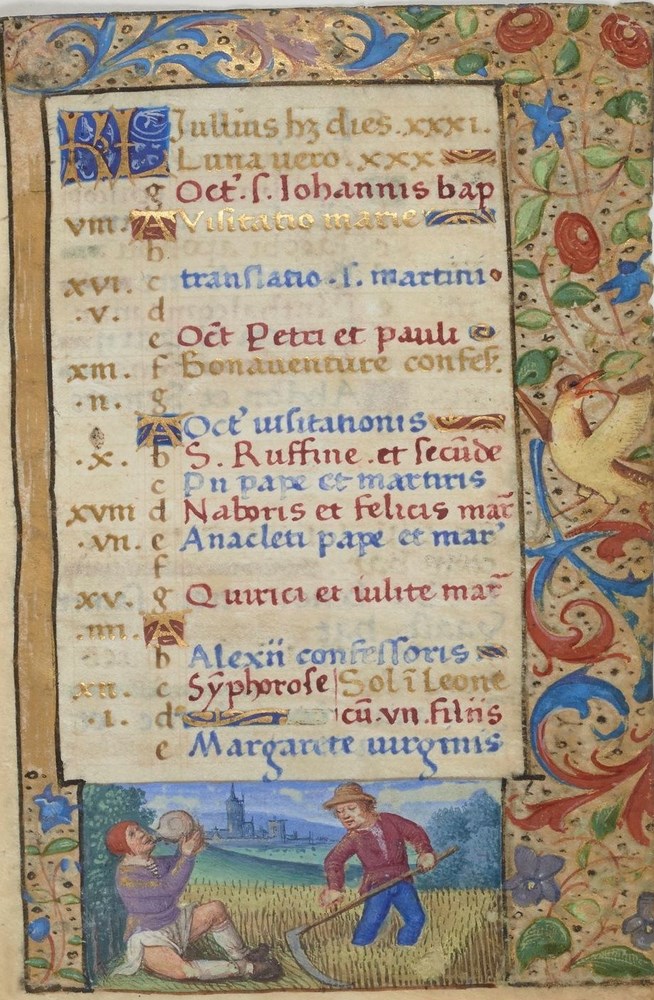 KL Jullius hꝫ dies .xxxi.
Luna uero . xxx
g Octꝰ. S. Iohannis bap
viii. A Visitatio marie
b
xvi. c translatio . S. martini
.v. d
e Oct̄ Petri et pauli
xiii. f Bonaventure confes.
.ii. g
A Octꝰ uisitationis
.x. b S. Ruffine .et secūde
c Pii pape et martiris
xviii d Naboris et felicis mar̄
.vii. e Anacleti pape et marꝰ
f
xv. g Quirici et iulite mar̄
.iiii. A
b Alexii confessoris
xii. c Sȳphorose Sol ī Leone
.i. d cū .vii. filiis
e Margarete uirginis